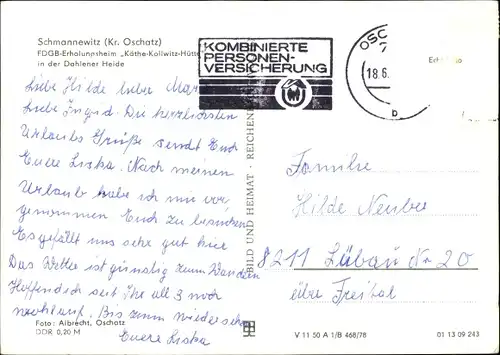 Schmannewitz (Kr. Oschatz)
FDGB-Erholungsheim „Käthe-Kollwitz-Hütte
in der Dahlener Heide
KOMBINIERTE
PERSONEN-
VERSICHERUNG
OSC
18.6.
b
Liebe Hilde liebe Mar
Liebe Ingrid. Die herzlichsten
Urlaubs Grüße sendt Euch
Euere Liska. Nach meinen
Urlaub habe ich mir vor
genommen Euch zu besuchen
Es gefällt uns sehr gut hier
Das Wetter ist günstig zum Wandern
Hoffendlich seit Ihr all 3 noch
wohlauf. Bis zum wiedersehn
Euere Liska
Foto: Albrecht, Oschatz
DDR 0,20 M
BILD UND HEIMAT · REICHEN
Familie
Hilde Neuber
8211 Lübau Nr 20
über Freital
V 11 50 A 1/B 468/78
01 13 09 243